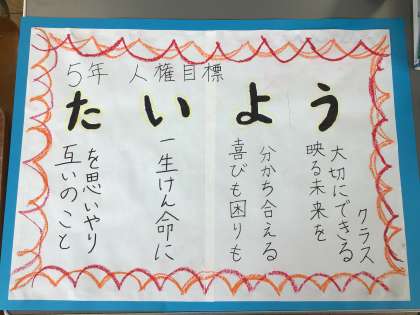 5年 人権目標
たいよう
互いのこと
を思いやり
一生けん命に
喜びも困りも
分かち合える
映る未来を
大切にできる
クラス